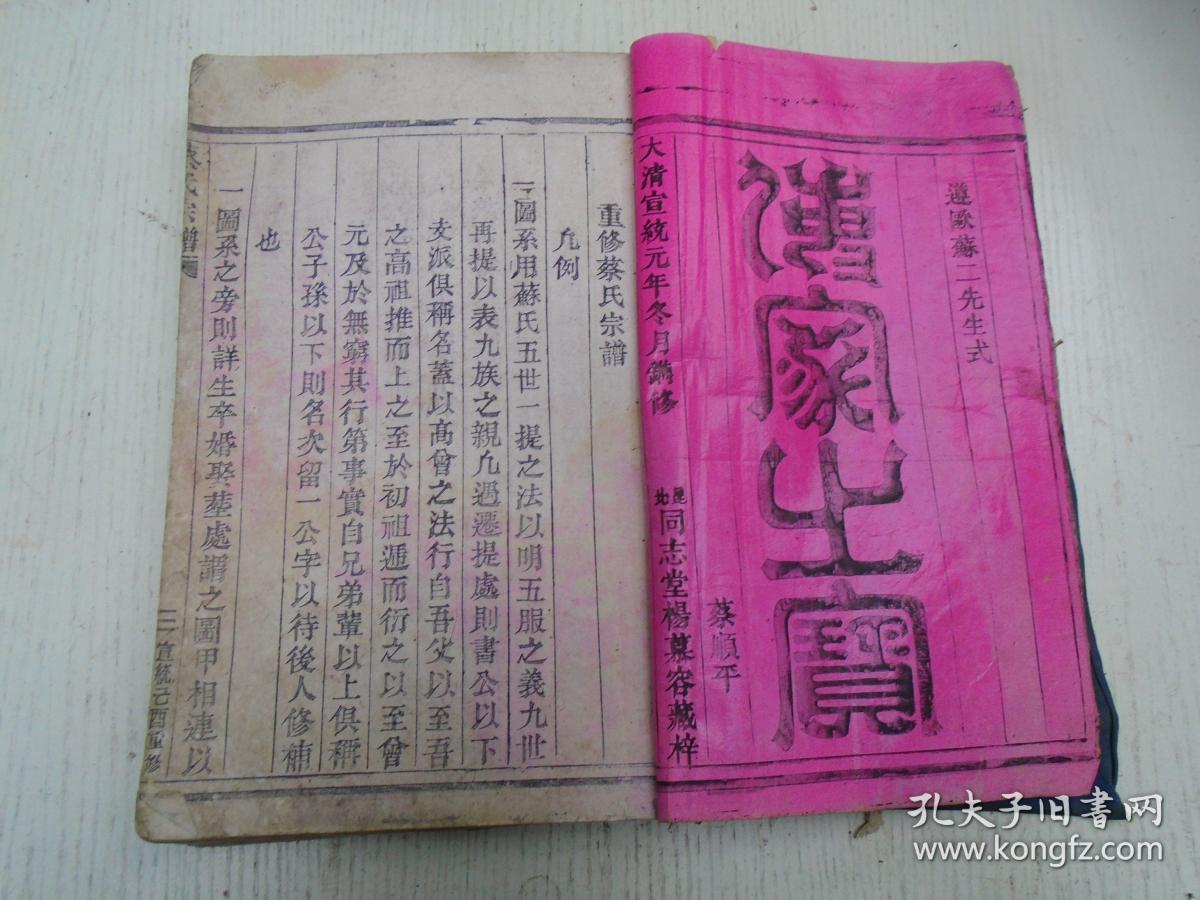 遵歐蘇二先生式
傳家之寶
蔡順平
大清宣統元年冬月鐫修
毘地
同志堂楊慕容藏梓
重修蔡氏宗譜
凡例
一圖系用蘇氏五世一提之法以明五服之義九世
再提以表九族之親凡過遷提處則書公以下
支派俱稱名蓋以高曾之法行自吾父以至吾
之高祖推而上之至於初祖遞而衍之以至曾
元及於無窮其行第事實自兄弟輩以上俱稱
公子孫以下則名次留一公字以待後人修補
也
一圖系之旁則詳生卒婚娶塟處謂之圖甲相連以
蔡氏宗譜
宣統己酉重修
孔夫子旧書网
www.kongfz.com